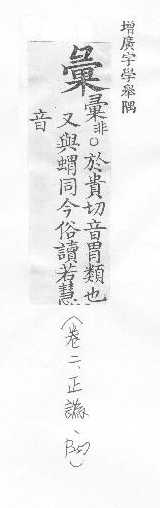 增廣字學舉隅
彚
彙非。於貴切音胃類也
又與蝟同今俗讀若慧
音
(卷二、正譌、B57)